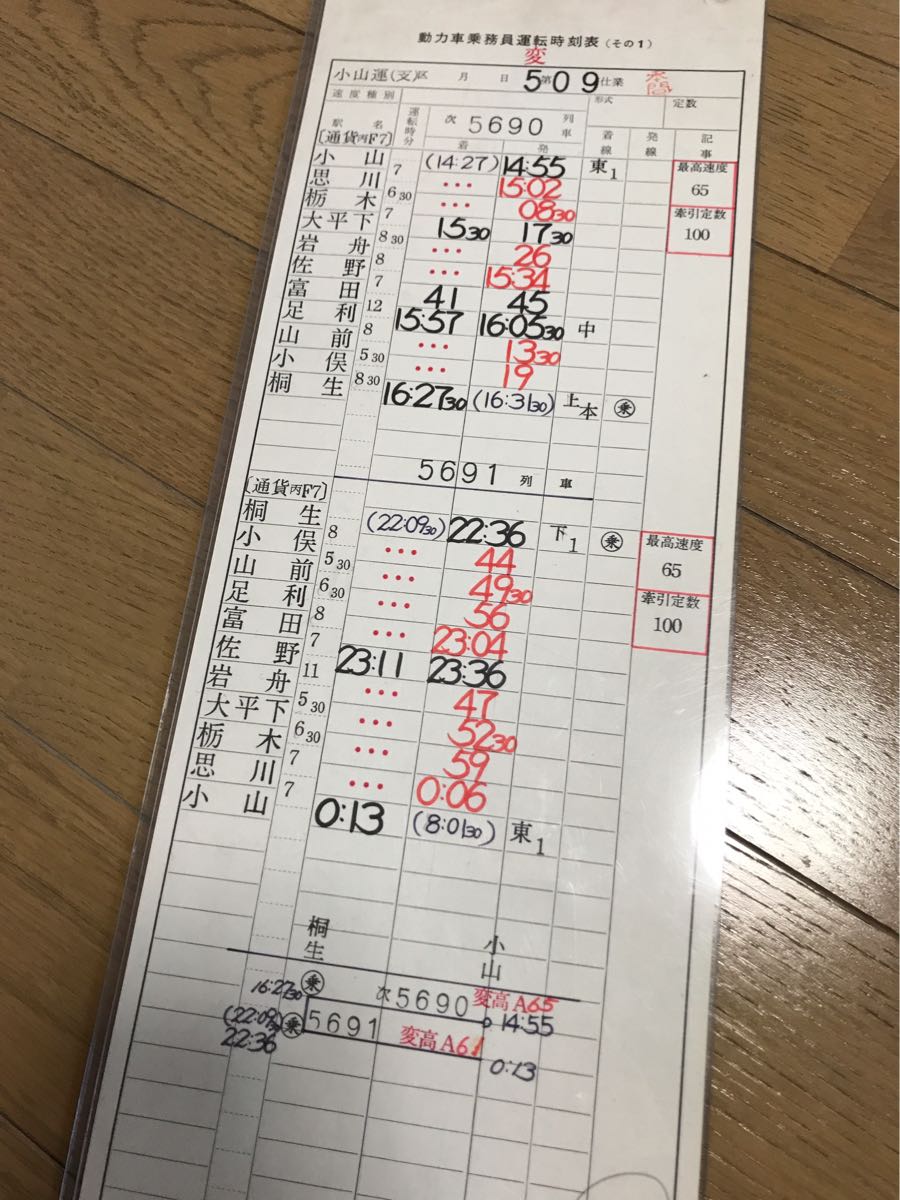 動力車乗務員運転時刻表(その1)
変
小山運(支)区 月 日 5第09仕業
速度種別 形式 定数
駅名 運転時分 次 5690 列車 着線 発線 記事
着 発
〔通貨丙F7〕
小山 (14:27) 14:55 東1 最高速度
7 65
思川 ・・・ 15:02
6 30 牽引定数
栃木 ・・・ 08 30 100
7
大平下 15 30 17 30
8 30
岩舟 ・・・ 26
8
佐野 ・・・ 15:34
7
富田 41 45
12
足利 15:57 16:05 30 中
8
山前 ・・・ 13 30
5 30
小俣 ・・・ 19
8 30
桐生 16:27 30 (16:31 30) 上本 乗
5691 列車
〔通貨丙F7〕
桐生 (22:09 30) 22:36 下1 乗 最高速度
8 65
小俣 ・・・ 44
5 30 牽引定数
山前 ・・・ 49 30 100
6 30
足利 ・・・ 56
8
富田 ・・・ 23:04
7
佐野 23:11 23:36
11
岩舟 ・・・ 47
5 30
大平下 ・・・ 52 30
6 30
栃木 ・・・ 59
7
思川 ・・・ 0:06
7
小山 0:13 (8:01 30) 東1
桐生 小山
16:27 30 乗 次5690 変高A65 14:55
(22:09 30) 乗 5691 変高A61
22:36 0:13